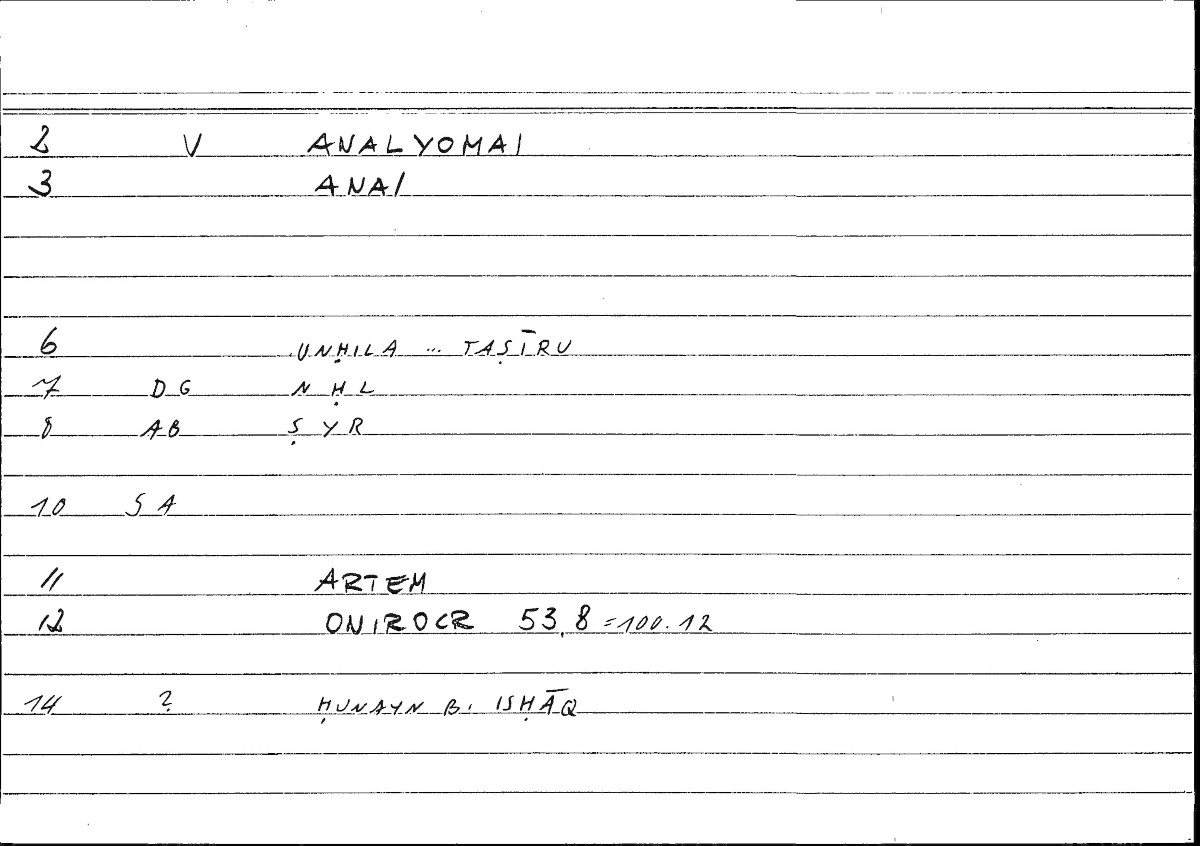 2 V ANALYOMAI
3 ANAI
6 .UNḤILA ... TAṢĪRU
7 DG NḤL
8 AB ṢYR
10 SA
11 ARTEM
12 ONIROCR 53,8 = 100.12
14 ? ḤUNAYN B. ISḤĀQ